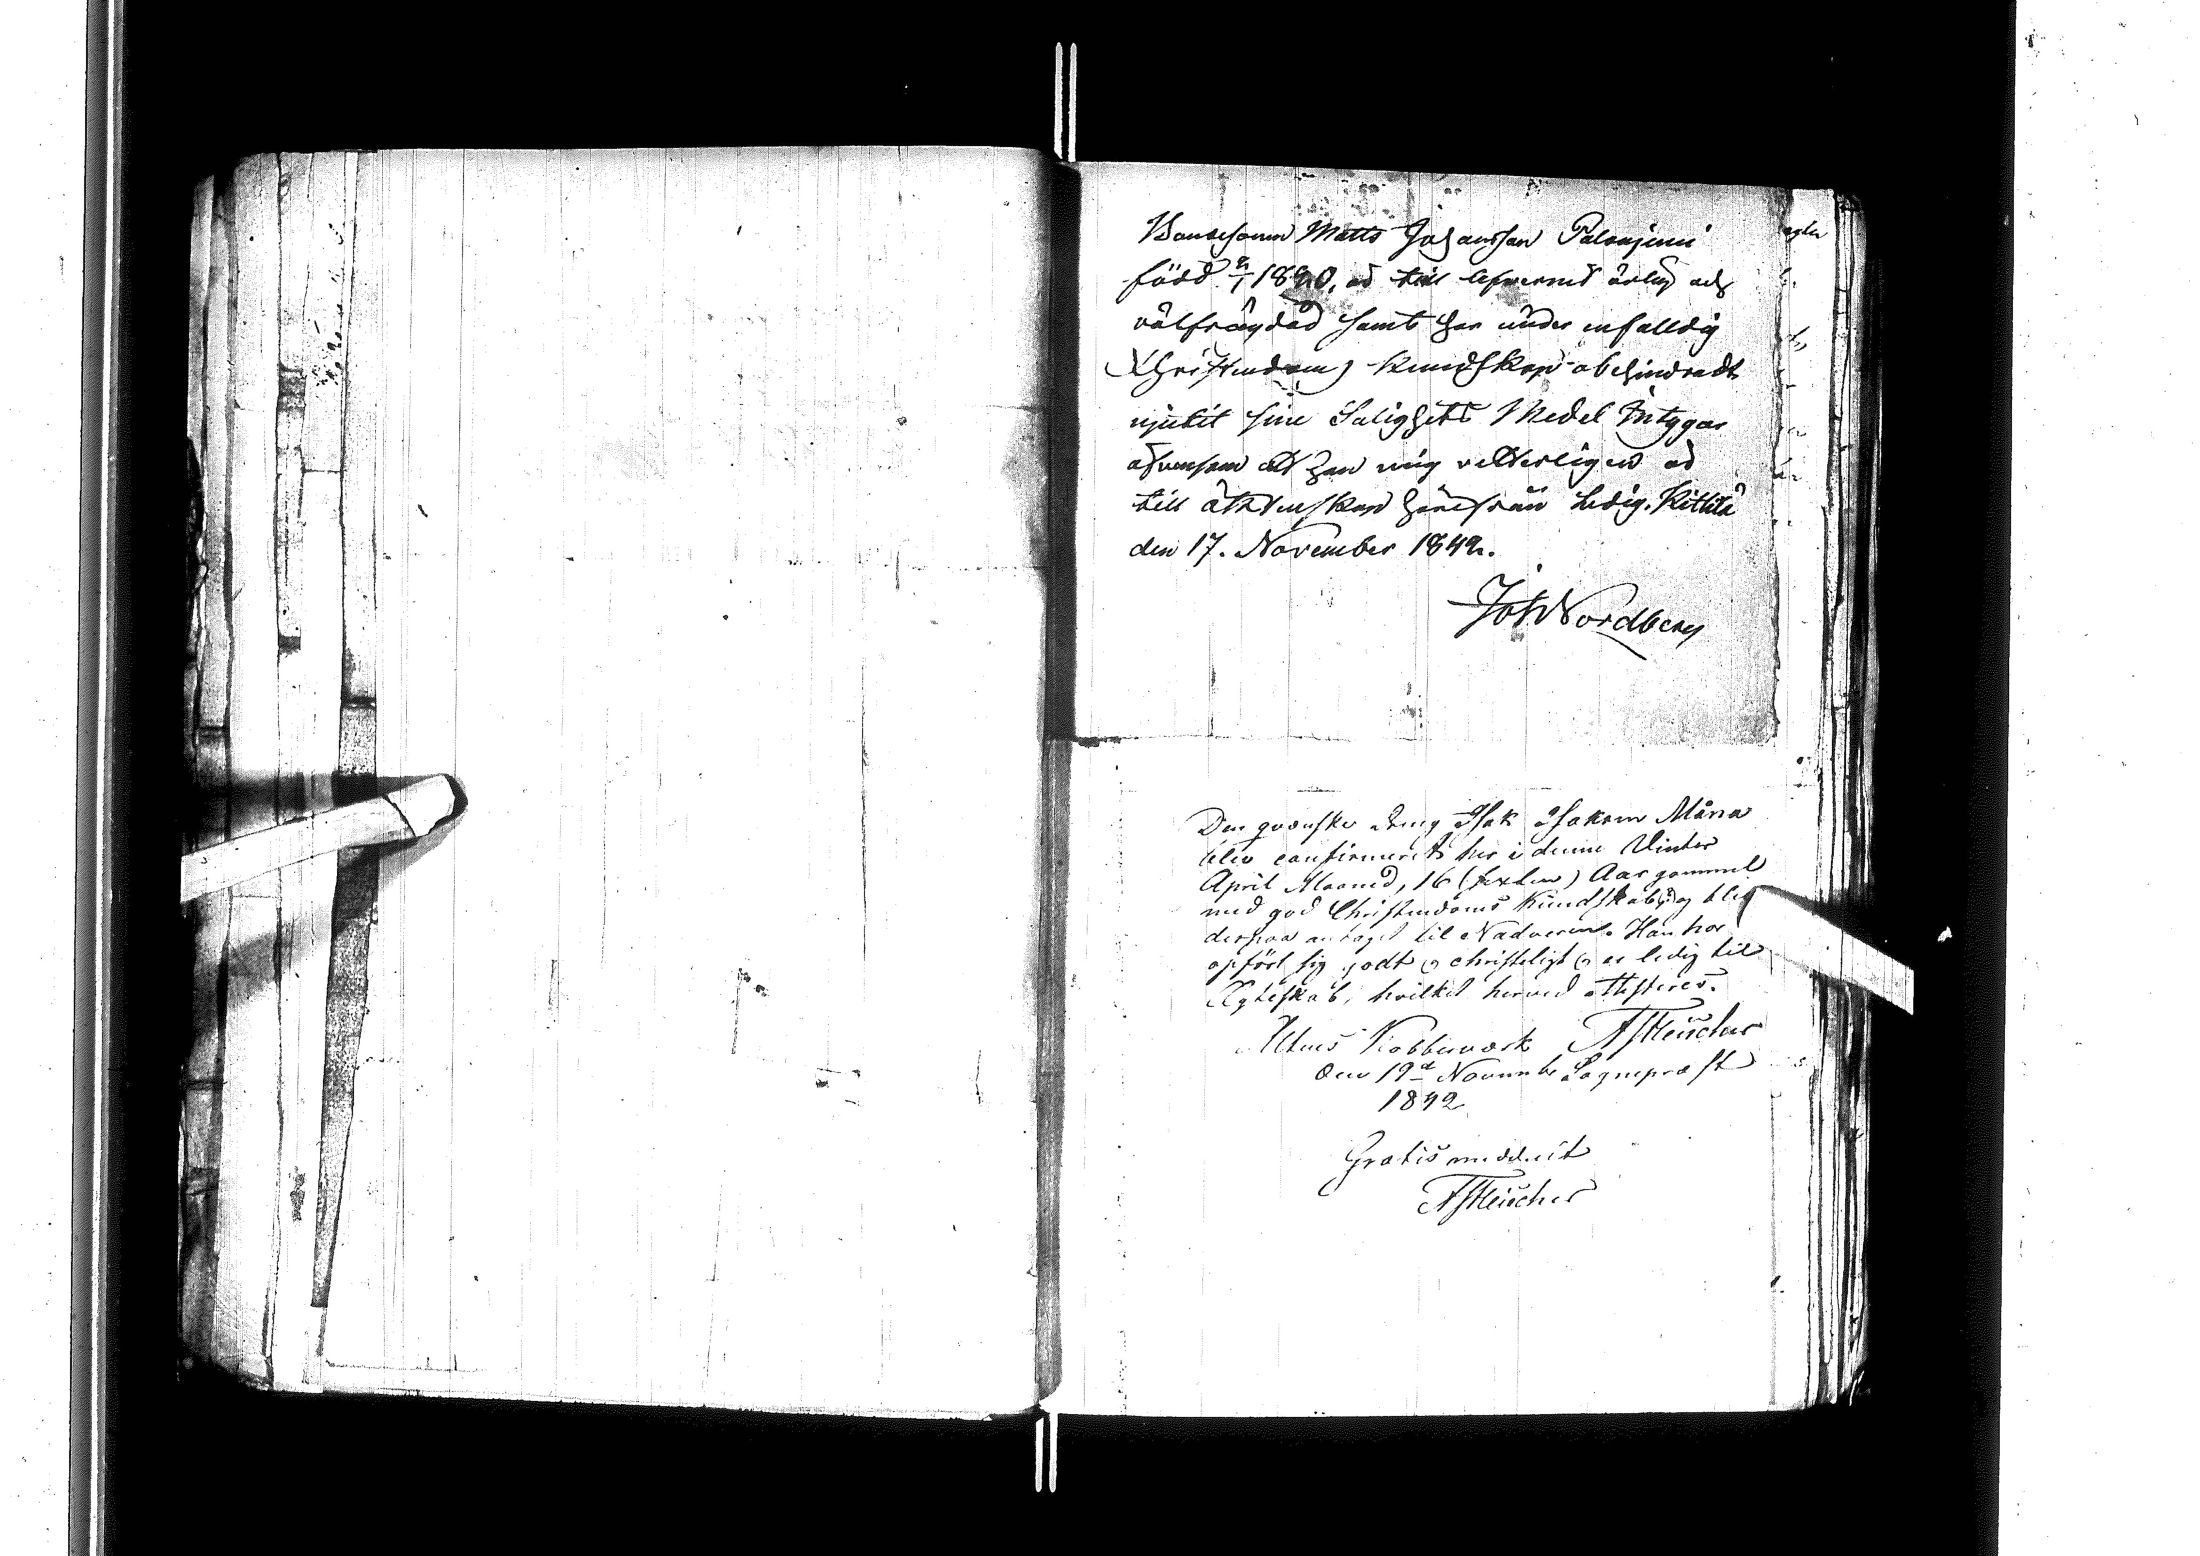 Bondesonen Matts Johansson Palorjerwi
född 2/1 1820, är till lefvernet ärlig och
välfrägdad samt har under enfalldig
Christendoms Kundskap obehindradt
njutit sine Salighets Medel Intygar
äfvensom att han mig vetterligen är
till äktenskap härifrån Ledig. Kittilä
den 17. November 1842.
Joh Nordberg
Den qvænske Dreng Isak Isaksen Måna
blev confirmeret her i denne Vinter
April Maaned, 16 (sexten) Aar gammel
med god Christendoms Kundskab, og blev
derpaa antaget til Nadveren. Han har
opfört sig godt og christeligt og er ledig til
Ægteskab, hvilket herved attesteres.
Altens Kobberværk A Fleischer
den 19d Novembr Sognepræst
1842
Gratis meddelt
A Fleischer